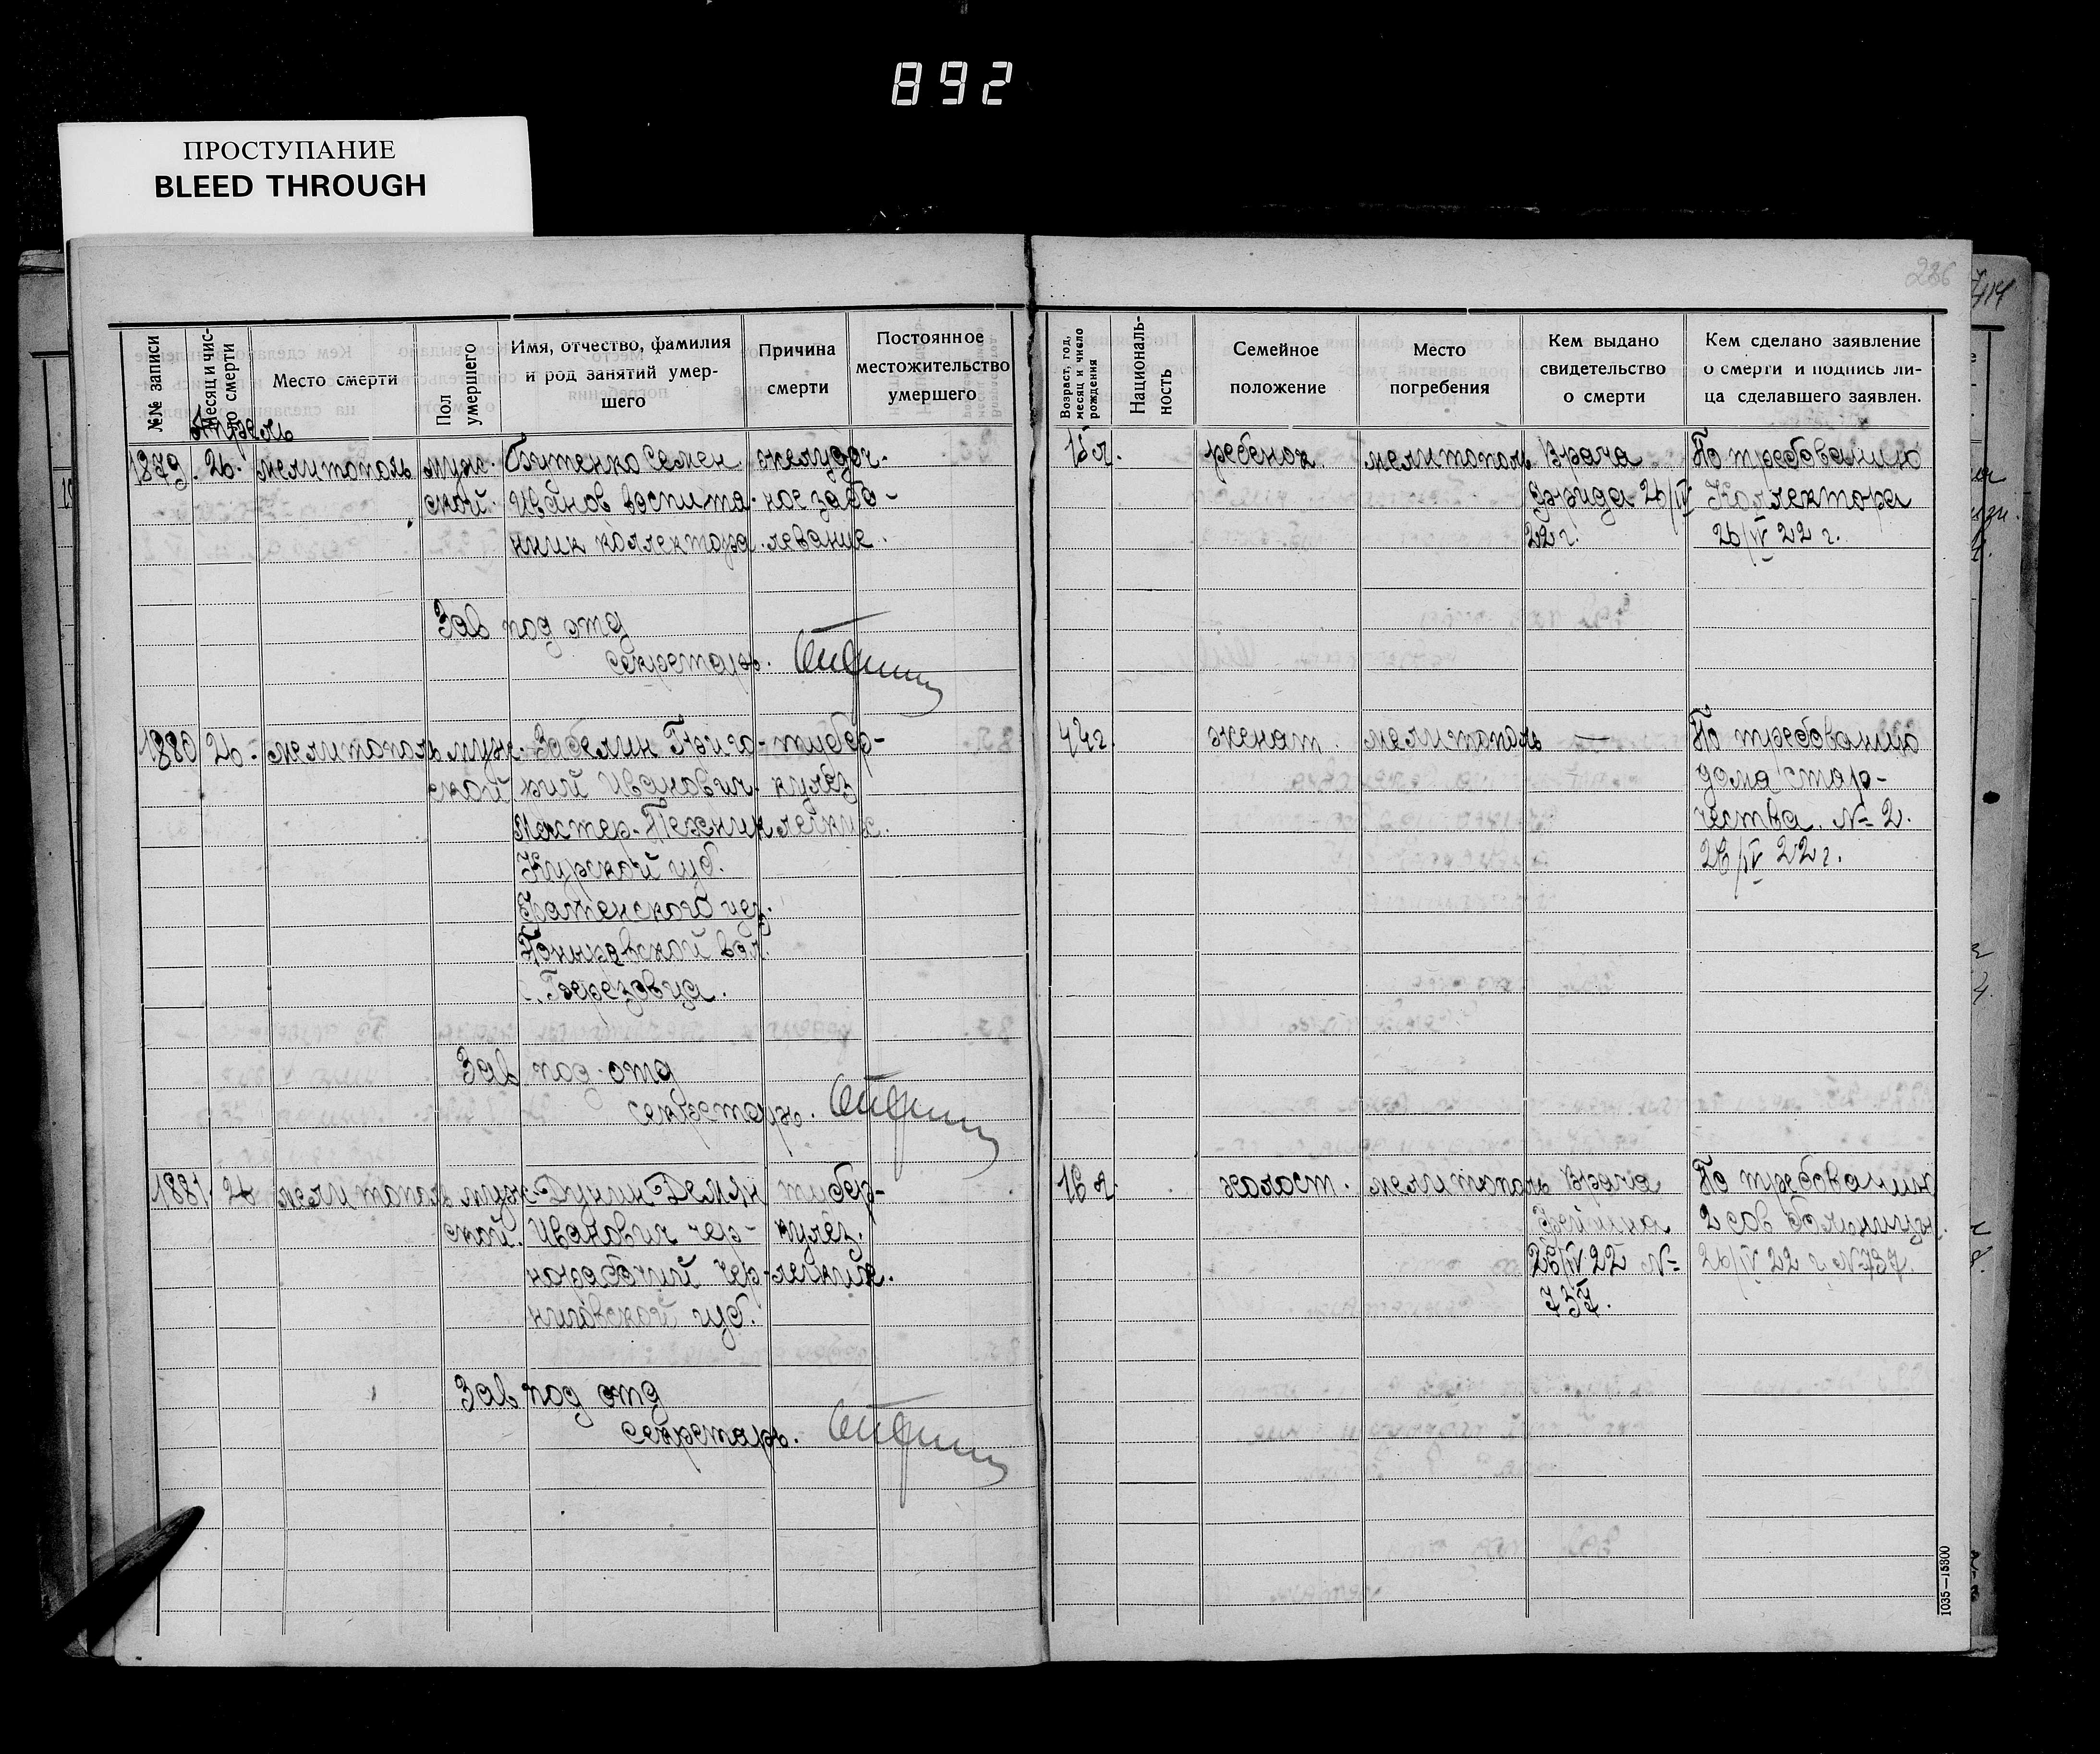 892
ПРОСТУПАНИЕ
BLEED THROUGH
236
№№ записи
Месяц и чис-
ло смерти
Место смерти
Пол
умершего
Имя, отчество, фамилия
и род занятий умер-
шего
Причина
смерти
Постоянное
местожительство
умершего
Возраст, год,
месяц и число
рождения
Националь-
ность
Семейное
положение
Место
погребения
Кем выдано
свидетельство
о смерти
Кем сделано заявление
о смерти и подпись ли-
ца сделавшего заявлен.
Апрель
1879. 26. мелитополь муж. Бутенко Семен желудоч- 15 л. ребенок мелитополь Врача По требованию
ской Иванов воспита- ное забо- 26/IV Коллектора
нник коллектора левание. 22 г. 26/IV 22 г.
Зав под отд
секретарь.
1880 26. мелитополь муж- Забелин Григо- тубер- 44 г. женат. мелитополь — По требованию
ской рий Иванович кулез дома стар-
Мастер-Техник легких. чества № 2.
Курской губ. 26/IV 22 г.
уез.
вол.
Березовца.
Зав под отд
секретарь.
1881. 26 мелитополь муж- Дунин Демян тубер- 16 л. холост. мелитополь Врача По требованию
ской. Иванович чер- кулез. 2 сов больницы
норабочий Чер- легких. 26/IV 22 № 26/IV 22 г № 737.
ниговской губ. 737.
Зав под отд
секретарь.
1035—15300